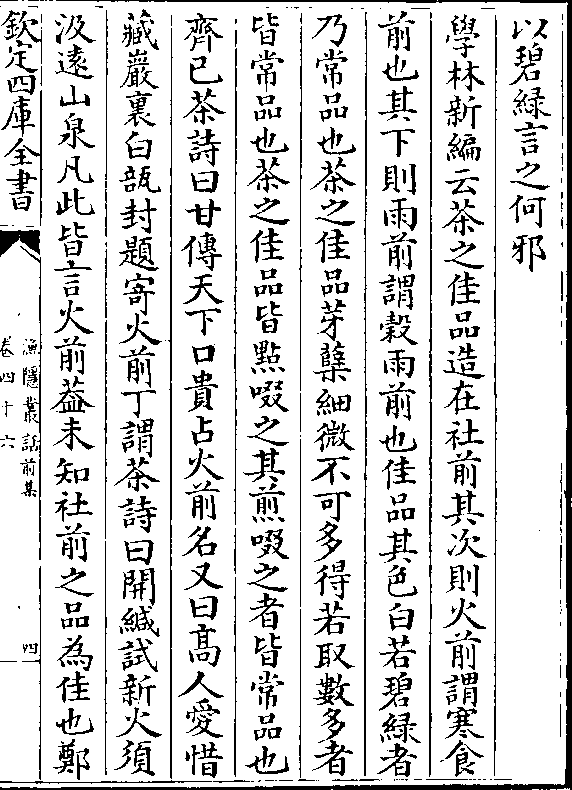 以碧緑言之何邪
學林新編云茶之佳品造在社前其次則火前謂寒食
前也其下則雨前謂榖雨前也佳品其色白若碧緑者
乃常品也茶之佳品芽蘖細微不可多得若取數多者
皆常品也茶之佳品皆㸃啜之其煎啜之者皆常品也
齊已茶詩曰甘傳天下口貴占火前名又曰髙人愛惜
藏巖裏白甀封題寄火前丁謂茶詩曰開緘試新火須
汲逺山泉凡此皆言火前葢未知社前之品為佳也鄭
欽定四庫全書
漁隱叢話前集
卷四十六
四